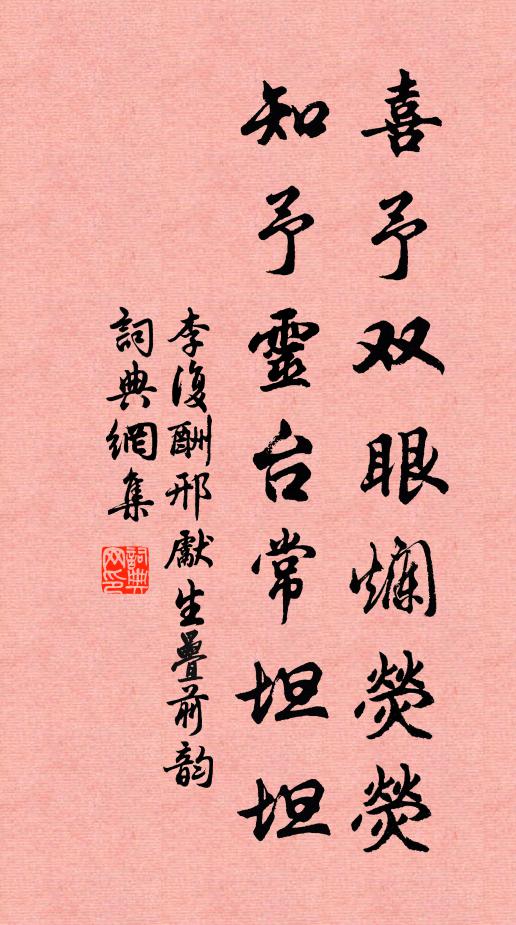 喜予双眼爛熒熒
知予靈台常坦坦
李復酬邢獻生疊前韵
詞典網集
詞典网印